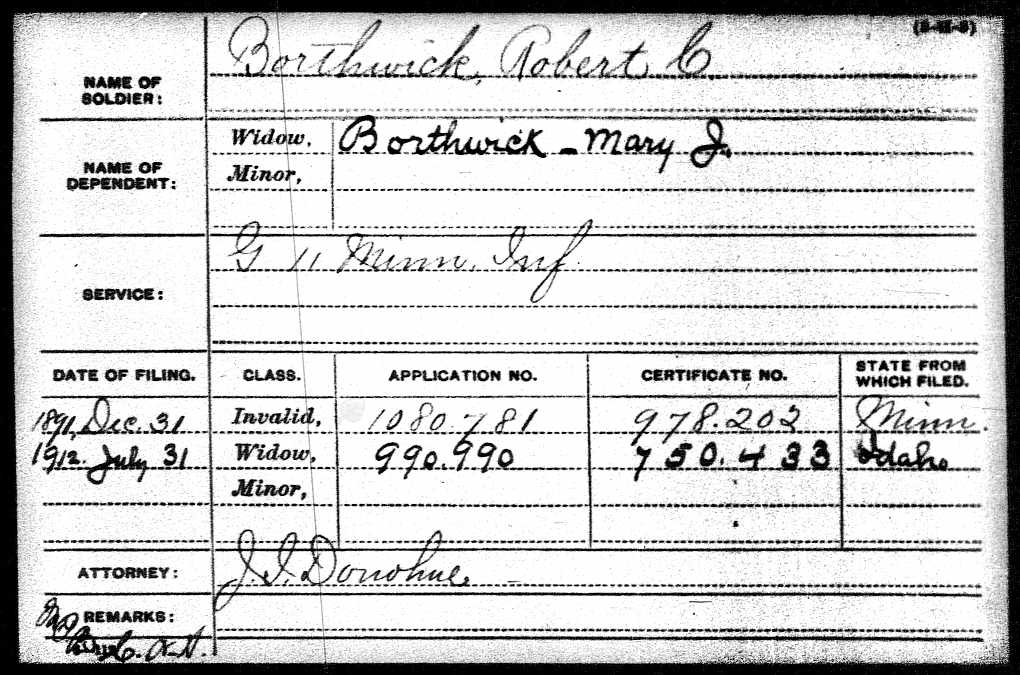 NAME OF SOLDIER: Borthwick, Robert C.
NAME OF DEPENDENT: Widow, Borthwick - Mary J.
Minor,
SERVICE: G 11 Minn. Inf.
DATE OF FILING. CLASS. APPLICATION NO. CERTIFICATE NO. STATE FROM WHICH FILED.
1891, Dec. 31 Invalid, 1080.781 978.202 Minn.
1912. July 31 Widow, 990.990 750.433 Idaho
Minor,
ATTORNEY: J. I. Donohue
REMARKS: